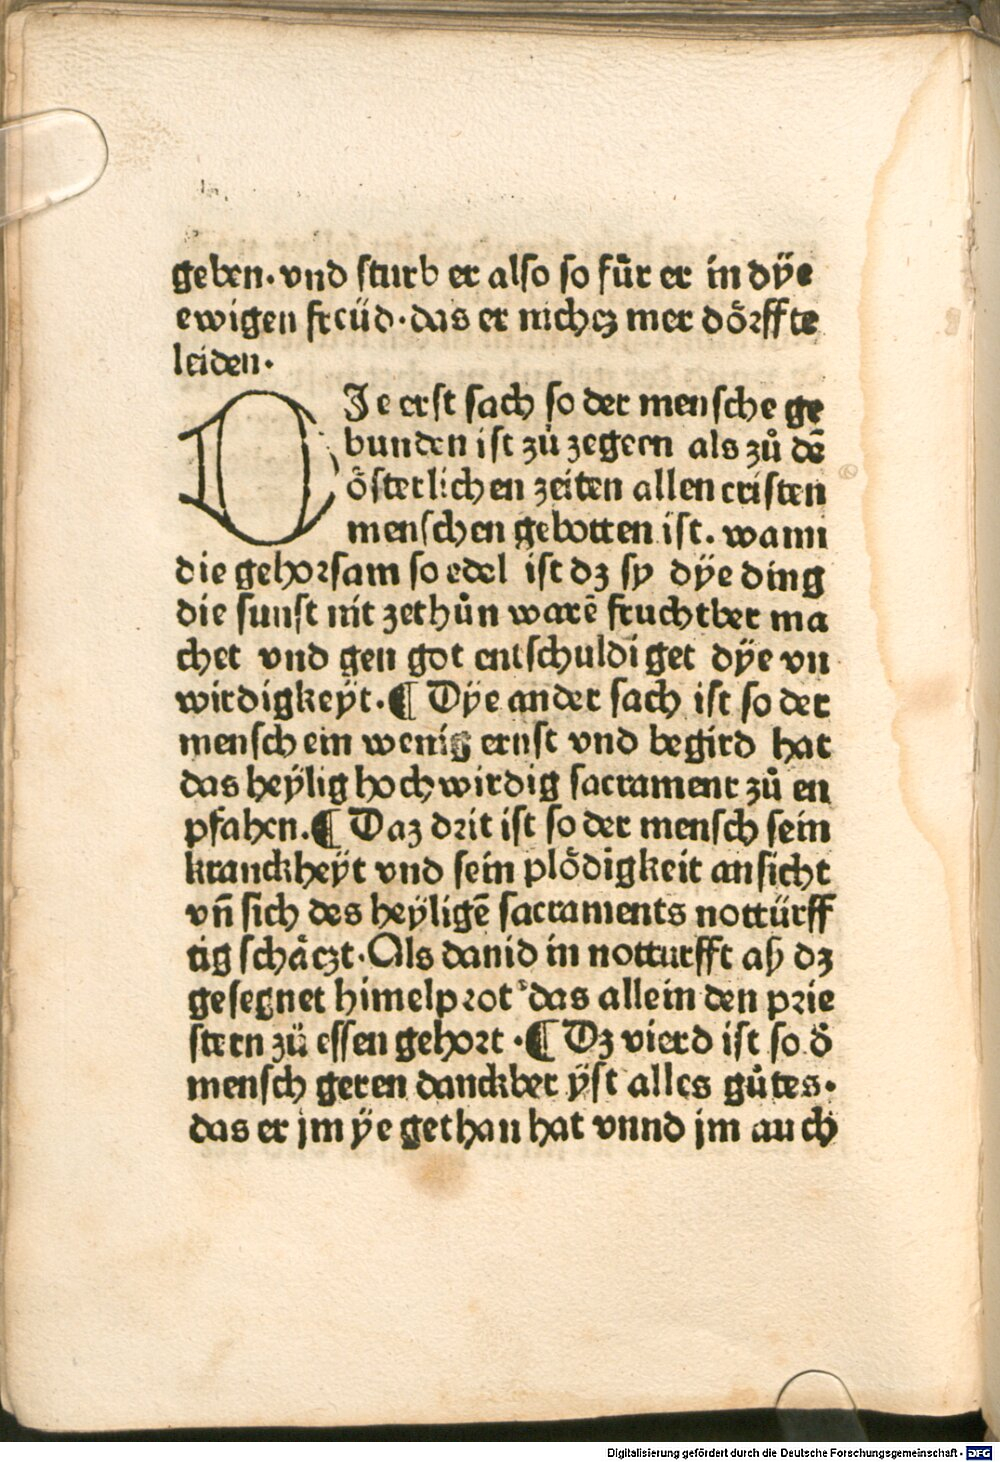 geben. vnd sturb er also so fůr er in dÿe
ewigen freüd. das er nichcz mer dörffte
leiden.
DJe erst sach so der mensche ge
bunden ist zů zegern als zů dē
österlichen zeiten allen cristen
menschen gebotten ist. wann
die gehorsam so edel ist dz sy dÿe ding
die sunst nit zethůn warē fruchtber ma
chet vnd gen got entschuldiget dÿe vn
wirdigkeÿt. ¶ Dÿe ander sach ist so der
mensch ein wenig ernst vnd begird hat
das heÿlig hochwirdig sacrament zů en
pfahen. ¶ Daz drit ist so der mensch sein
kranckheÿt vnd sein plödigkeit ansicht
vn̄ sich des heÿligē sacraments nottürff
tig schäczt. Als dauid in notturfft aß dz
gesegnet himelprot das allein den prie
stern zü essen gehort. ¶ Dz vierd ist so d̛
mensch geren danckber ÿst alles gůtes.
das er jm ÿe gethan hat vnnd jm auch
Digitalisierung gefördert durch die Deutsche Forschungsgemeinschaft - DFG